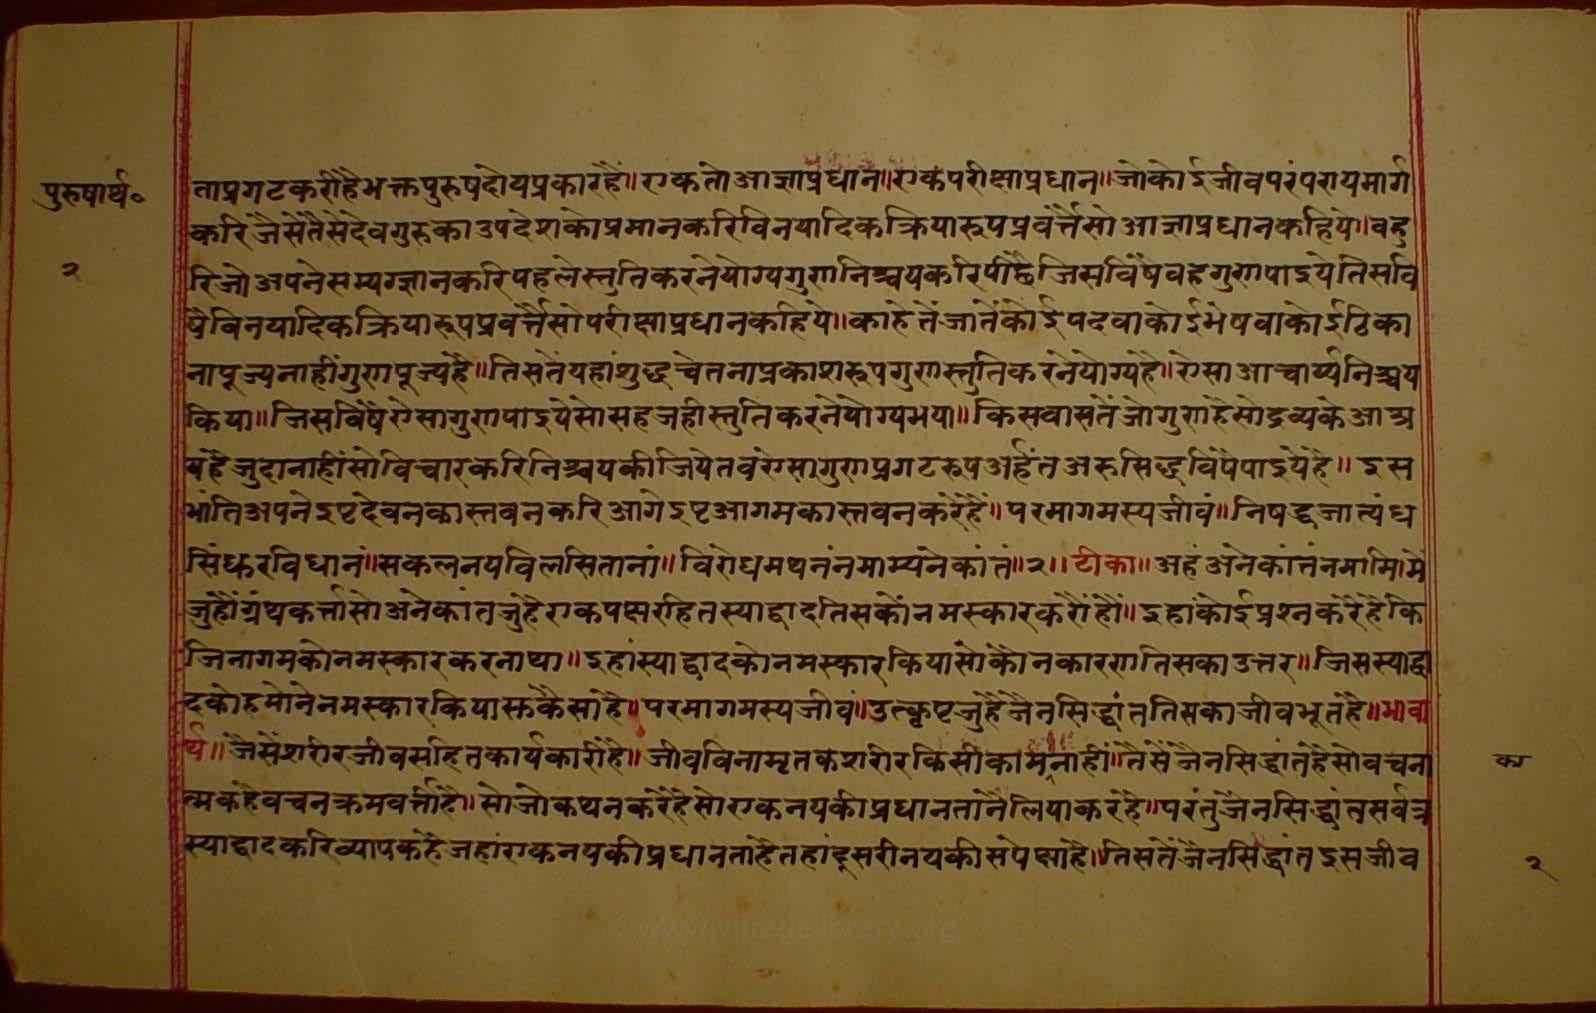 पुरुषार्थ॰
२
ताप्रगटकरीहैभक्तपुरुषदोयप्रकारहैं॥एकतोआज्ञाप्रधान॥एकपरीक्षाप्रधान॥जोकोईजीवपरंपरायमार्ग
करिजैसेंतैसेंदेवगुरुकाउपदेशकोप्रमानकरिविनयादिकक्रियारूपप्रवर्त्तैसोआज्ञाप्रधानकहिये॥बहु
रिजोअपनेसम्यग्ज्ञानकरिपहलेस्तुतिकरनेयोग्यगुणनिश्चयकरिपीछैजिसविषैंवहगुणपाइयेतिसवि
षैविनयादिकक्रियारूपप्रवर्त्तैसोपरीक्षाप्रधानकहिये॥काहेतेंजातेंकोईपदवाकोईभेषवाकोईठिका
नापूज्यनाहींगुणपूज्यहै॥तिसतेंयहांशुद्धचेतनाप्रकाशरूपगुणस्तुतिकरनेयोग्यहै॥ऐसाआचार्य्यनिश्चय
किया॥जिसविषैंऐसागुणपाइयेसोसहजहीस्तुतिकरनेयोग्यभया॥किसवासतेंजोगुणहैसोद्रव्यकेआश्र
यहैजुदानाहींसोविचारकरिनिश्चयकीजियेतबऐसागुणप्रगटरूपअर्हंतअरुसिद्धविषैंपाइयेहै॥इस
भांतिअपनेइष्टदेवनकास्तवनकरिआगेइष्टआगमकास्तवनकरेहैं॥परमागमस्यजीवं॥निषद्धजात्यंध
सिंधुरविधानं॥सकलनयविलसितानां॥विरोधमथनंनमाम्यनेकांतं॥२॥टीका॥अहंअनेकांतंनमामिमें
जुहौंग्रंथकर्त्तासोअनेकांतजुहैएकपक्षरहितस्याद्वादतिसकोंनमस्कारकरौंहौं॥इहांकोईप्रश्नकरेहैकि
जिनागमकोनमस्कारकरनाथा॥इहांस्याद्वादकोनमस्कारकियासोकौनकारणतिसकाउत्तर॥जिसस्याद्वा
दकोहमोनेनमस्कारकियास्तकैसाहै॥परमागमस्यजीवं॥उत्कृष्टजुहैजैनसिद्धांततिसकाजीवभूतहै॥भावा
र्थ॥जैसेंशरीरजीवसहितकार्यकारीहै॥जीवविनामृतकशरीरकिसीकामनाहीं॥तैसेंजैनसिद्धांतहैसोवचना
त्मकहैवचनक्रमवर्त्तीहै॥सोजोकथनकरेहैसोएकनयकीप्रधानतानैलियाकरेहै॥परंतुजैनसिद्धांतसर्वत्र
स्याद्वादकरिव्यापकहैजहांएकनयकीप्रधानताहैतहांदूसरीनयकीसपेक्षाहै॥तिसतेंजैनसिद्धांतइसजीव
का
२
www.vitragelibrary.org